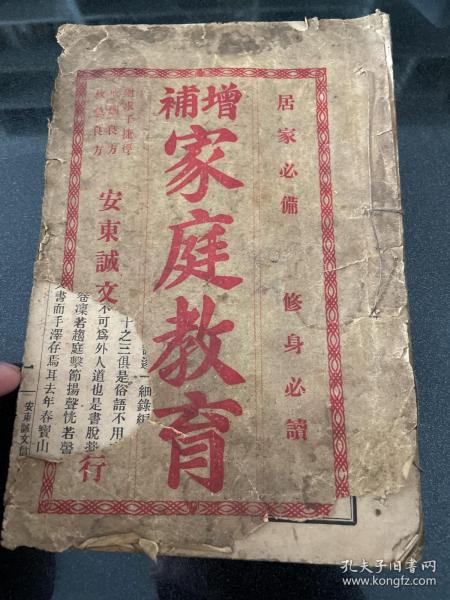 居家必備 修身必讀
增補
家庭教育
救急良方
安東誠文
行
一細錄
十之三俱是俗語不用
不可爲外人道也是書脫
凜若趨庭擊節揚聲恍若
書而手澤存焉耳去年春寶山
安東誠文信
孔夫子旧书网
www.kongfz.com